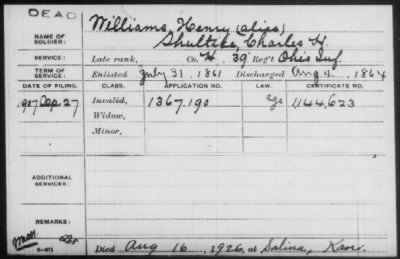 DEAD
Williams, Henry (alias)
NAME OF SOLDIER: Shultice, Charles H.
SERVICE: Late rank, Co. H, 39 Reg't Ohio Inf.
TERM OF SERVICE: Enlisted July 31, 1861 Discharged Aug 4, 1864
DATE OF FILING. CLASS. APPLICATION NO. LAW. CERTIFICATE NO.
1907 27 Invalid, 1367,190 1,144,623
Widow,
Minor,
ADDITIONAL SERVICES:
REMARKS:
Died Aug 16, 1926, at Salina, Kans.